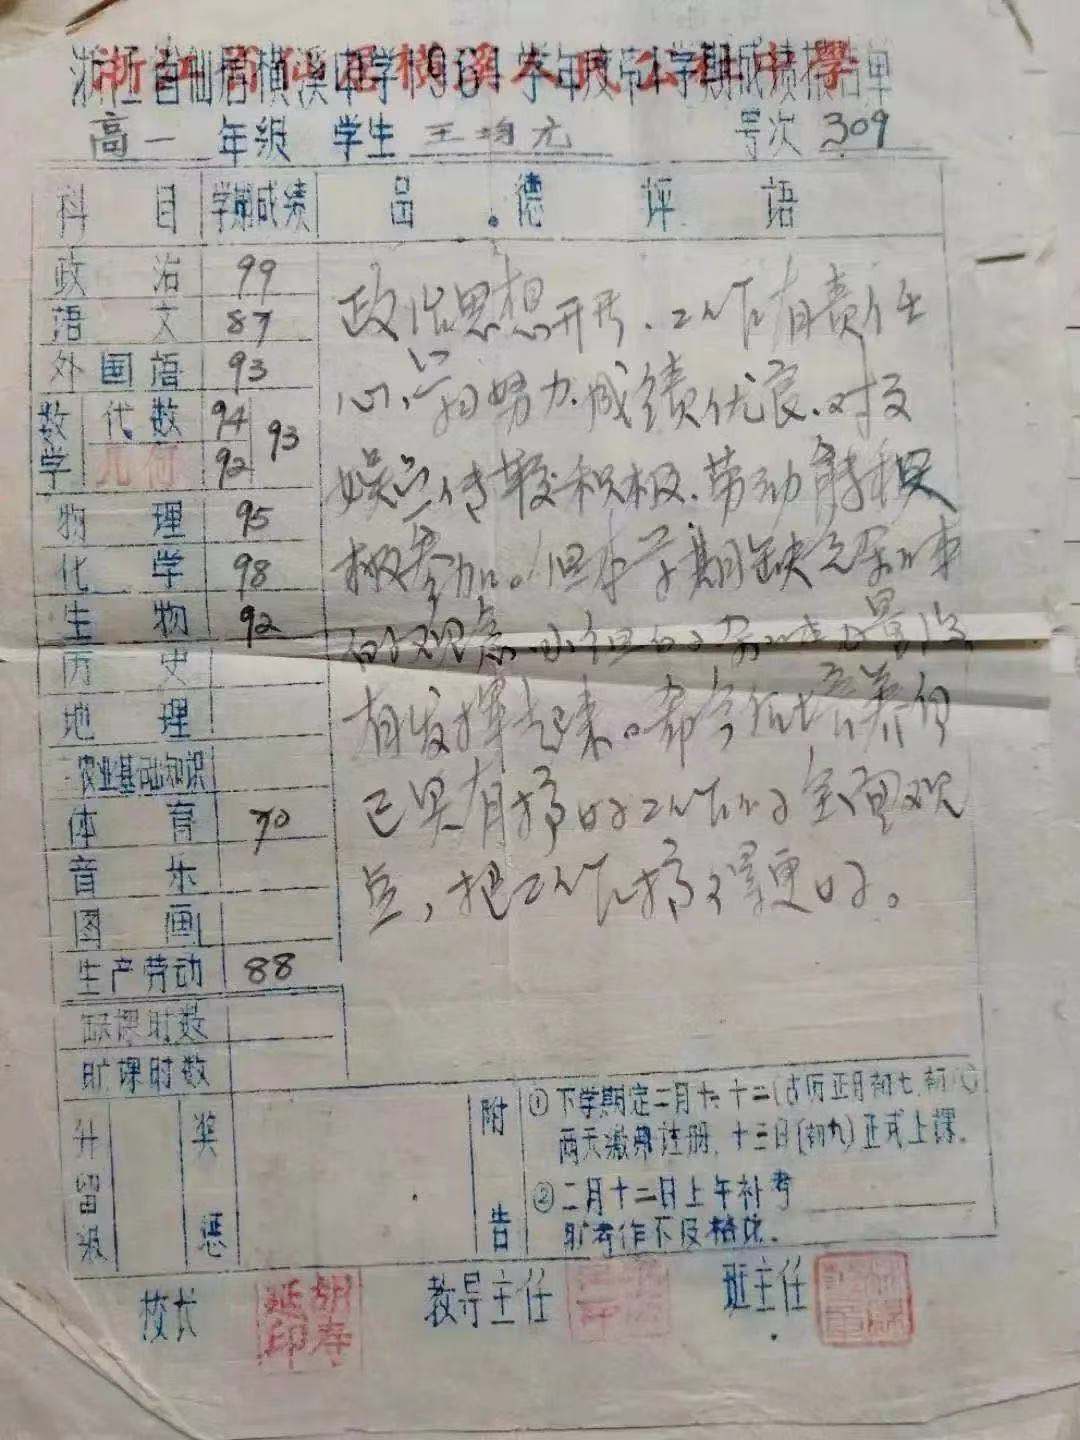 浙江省仙居横溪中学1961学年度第1学期成绩报告单
高一 年级 学生 王均元 号次 309
科目 学期成绩 品德评语
政治 99
语文 87
外国语 93
数学 代数 94 93
几何 92
物理 95
化学 98
生物 92
历史
地理
农业基础知识
体育 70
音乐
图画
生产劳动 88
缺课时数
旷课时数
政治思想开步、工作有责任
心、学习努力、成绩优良、对文
娱宣传较积极、劳动能积
极参加。但本学期缺乏
的观点、小组的力量没
有发挥起来。希今后培养自
己具有搞好工作的全面观
点，把工作搞得更好。
升留级
奖惩
附告
①下学期定二月十一、十二(古历正月初七、初八)
两天缴费注册，十三日(初九)正式上课。
②二月十二日上午补考
旷考作不及格论。
校长 胡寿延印 教导主任 班主任